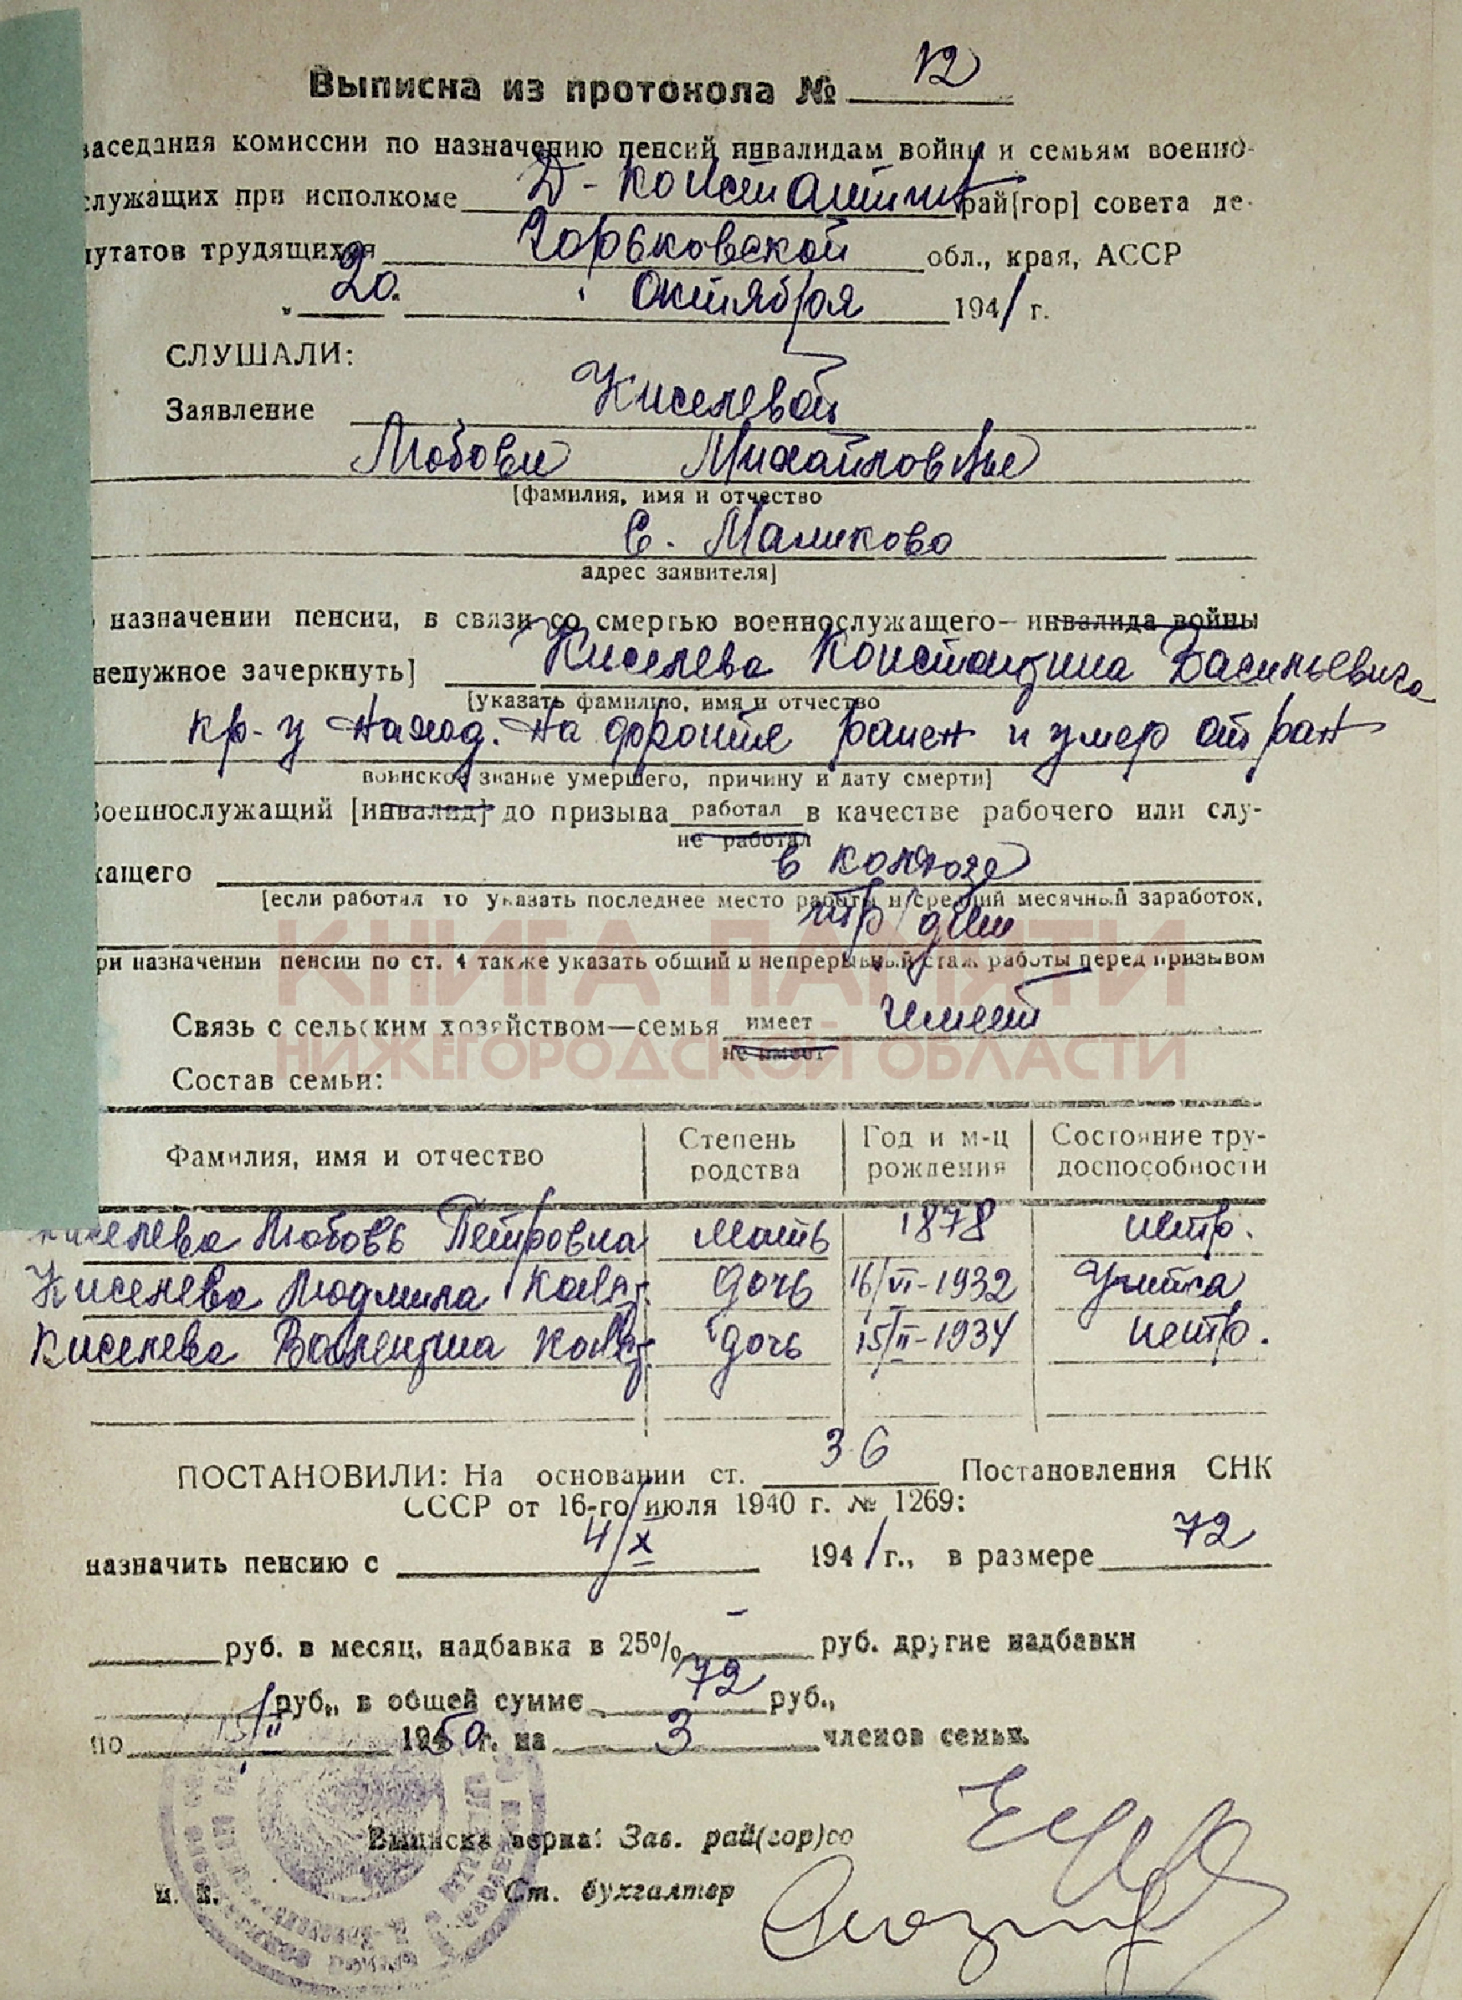 Выписка из протокола № 12
заседания комиссии по назначению пенсий инвалидам войны и семьям военно-
служащих при исполкоме Д-Константин рай[гор] совета де-
путатов трудящихся Горьковской обл., края, АССР
„ 20 " октября 1941 г.
СЛУШАЛИ:
Заявление Киселевой
Любови Михайловны
[фамилия, имя и отчество
С. Маликово
адрес заявителя]
назначении пенсии, в связи со смертью военнослужащего—инвалида войны
ненужное зачеркнуть] Киселева Константина Васильевича
[указать фамилию, имя и отчество
кр-ц наход. на фронте ранен и умер от ран
воинское звание умершего, причину и дату смерти]
военнослужащий [инвалид] до призыва работал в качестве рабочего или слу-
не работал
жащего в колхозе
[если работал то указать последнее место работы и средний месячный заработок,
тр/дни
при назначении пенсии по ст. 4 также указать общий и непрерывный стаж работы перед призывом
КНИГА ПАМЯТИ
Связь с сельским хозяйством—семья имеет имеет
не имеет
НИЖЕГОРОДСКОЙ ОБЛАСТИ
Состав семьи:
Фамилия, имя и отчество Степень родства Год и м-ц рождения Состояние тру-доспособности
Киселева Любовь Петровна мать 1878 нетр.
Киселева Людмила Конст. дочь 16/VI-1932 Учится
Киселева Валентина Конст. дочь 15/II-1934 нетр.
ПОСТАНОВИЛИ: На основании ст. 36 Постановления СНК
СССР от 16-го июля 1940 г. № 1269:
назначить пенсию с 4/X 1941 г., в размере 72
руб. в месяц, надбавка в 25% — руб. другие надбавки
руб., в общей сумме 72 руб.,
по 15/II 1950 г. на 3 членов семьи.
Выписка верна: Зав. рай(гор)со
м. п. Ст. бухгалтер